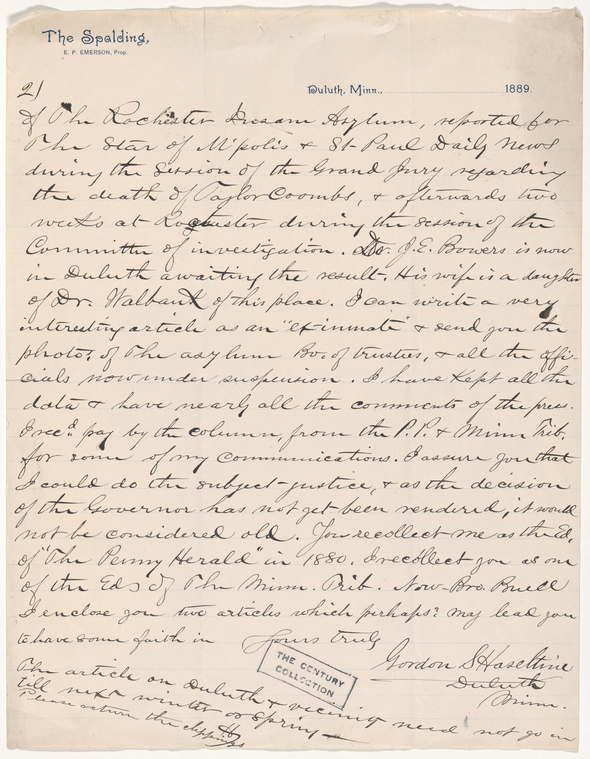 The Spalding,
E. P. EMERSON, Prop.
Duluth, Minn., 1889.
2)
of The Rochester Insane Asylum, reported for
The Star of M'polis & St. Paul Daily News
during the session of the Grand Jury regarding
the death of Taylor Coombs, & afterwards two
weeks at Rochester during the session of the
Committe of investigation. Dr. J. E. Bowers is now
in Duluth awaiting the result. His wife is a daughter
of Dr. Walbank of this place. I can write a very
interesting article as an "ex-inmate" & send you the
photos. of The asylum Bo. of trustees, & all the offi-
cials now under suspension. I have Kept all the
data & have nearly all the comments of the press.
I rec'd pay by the column, from the P.P. & Minn Trib.
for some of my communications. I assure you that
I could do the subject justice, & as the decision
of the Governor has not yet been rendered, it would
not be considered old. You recollect me as the Ed.
of "The Penny Herald" in 1880. I recollect you as one
of the Eds of The Minn. Trib. Now Bro. Buell
I enclose you two articles which perhaps? may lead you
to have some faith in Yours truly
Gordon S Haseltine
Duluth
Minn.
THE CENTURY
COLLECTION
The article on Duluth & vicinity need not go in
till next winter or Spring
Please return the clippings